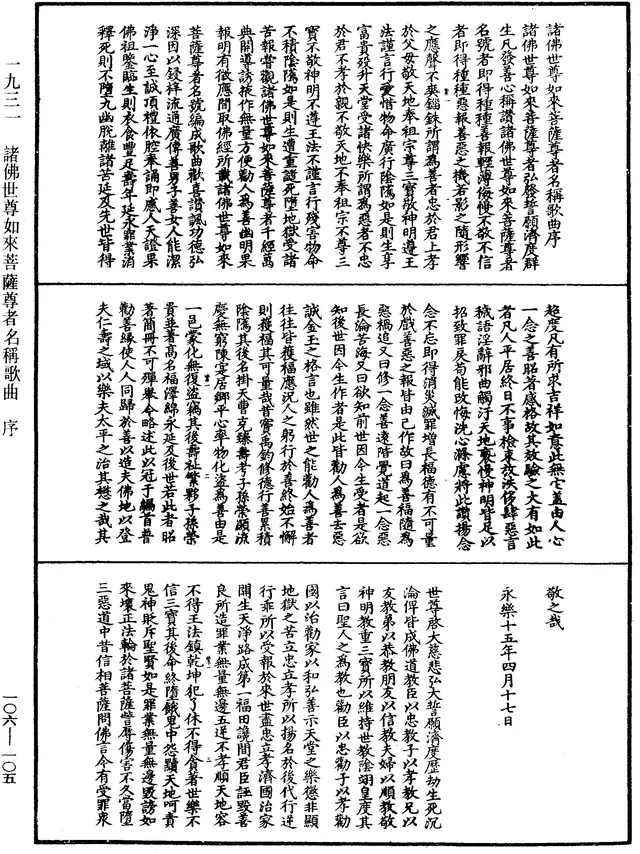 諸佛世尊如來菩薩尊者名稱歌曲序
諸佛世尊如來菩薩尊者弘發誓願濟度群
生凡發善心稱讚諸佛世尊如來菩薩尊者
名號者即得種種善報輕薄侮慢不敬不信
者即得種種惡報善惡之機若影之隨形響
之應聲不爽錙銖所謂為善者忠於君上孝
於父母敬天地奉祖宗尊三寶敬神明遵王
法謹言行愛惜物命廣行陰隲如是則生享
富貴歿升天堂受諸快樂所謂為惡者不忠
於君不孝於親不敬天地不奉祖宗不尊三
寶不敬神明不遵王法不謹言行殘害物命
不積陰隲如是則生遭重譴死墮地獄受諸
苦報嘗觀諸佛世尊如來菩薩尊者千經萬
典開導誘掖作無量方便勸人為善幽明果
報明有徵應間取佛經所載諸佛世尊如來
菩薩尊者名號編成歌曲歡喜讚諷功德弘
深因以鋟梓流通廣傳善男子善女人能潔
淨一心至誠頂禮依腔奉誦即感人天證果
佛祖鑒臨生則衣食豐足壽年延永罪業消
釋死則不墮九幽脫離諸苦延及先世皆得
超度凡有所求吉祥如意此無它蓋由人心
一念之善昭著感格故其效驗之大有如此
者凡人平居終日不事檢束放泆侈肆惡言
穢語淫辭邪曲觸汙天地褻慢神明皆足以
招致罪戾苟能改悔洗心滌慮將此讚揚念
念不忘即得消災滅罪增長福德有不可量
於戲善惡之報皆由己作故曰為善福隨為
惡禍追又曰修一念善遠階覺道起一念惡
長淪苦海又曰欲知前世因今生受者是欲
知後世因今生作者是此皆勸人為善去惡
誠金玉之格言也雖然世之能勸人為善者
往往皆獲福應況人之躬行於善終始不懈
則獲福其可量哉昔竇禹鈞修德行善累積
陰隲其後名掛天曹克臻壽考子孫榮顯流
慶無窮陳寔居鄉平心率物化盜為善由是
一邑蒙化無復盜竊其後壽祉繁夥子孫榮
貴並著高名福澤綿永延及後世若此者昭
著簡冊不可殫舉今略述此以冠于編首普
勸善緣使人人同歸於善以造夫佛地以登
夫仁壽之域以樂夫太平之治其懋之哉其
敬之哉
永樂十五年四月十七日
世尊啟大慈悲弘大誓願濟度歷劫生死沉
淪俾皆成佛道教臣以忠教子以孝教兄以
友教弟以恭教朋友以信教夫婦以順教敬
神明教重三寶所以維持世教陰翊皇度其
言曰聖人之為教也勸臣以忠勸子以孝勸
國以治勸家以和弘善示天堂之樂懲非顯
地獄之苦立忠立孝所以揚名於後代行逆
行乖所以受報於來世盡忠立孝濟國治家
開生天淨路成第一福田讒間君臣誣毀善
良所造罪業無量無邊五逆不孝順天地容
不得王法鎮乾坤犯了休不得貪著世樂不
信三寶其後命終墮餓鬼中怨黷天地呵責
鬼神欺斥聖賢如是罪業無量無邊毀謗如
來壞正法輪於諸菩薩訾辱傷害不久當墮
三惡道中昔信相菩薩問佛言今有受罪眾
一九三一 諸佛世尊如來菩薩尊者名稱歌曲 序
一〇六—一〇五